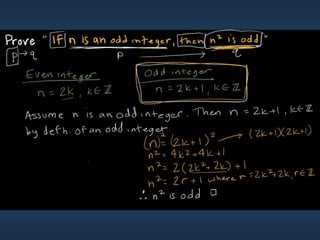 Prove "If n is an odd integer, then n² is odd"
p→q
p
q
Even integer
n = 2k, k∈ℤ
Odd integer
n = 2k+1, k∈ℤ
Assume n is an odd integer. Then n = 2k+1, k∈ℤ
by defn. of an odd integer.
(n)² = (2k+1)² → (2k+1)(2k+1)
n² = 4k²+4k+1
n² = 2(2k²+2k)+1
n² = 2r+1 where r=2k²+2k, r∈ℤ
∴ n² is odd □